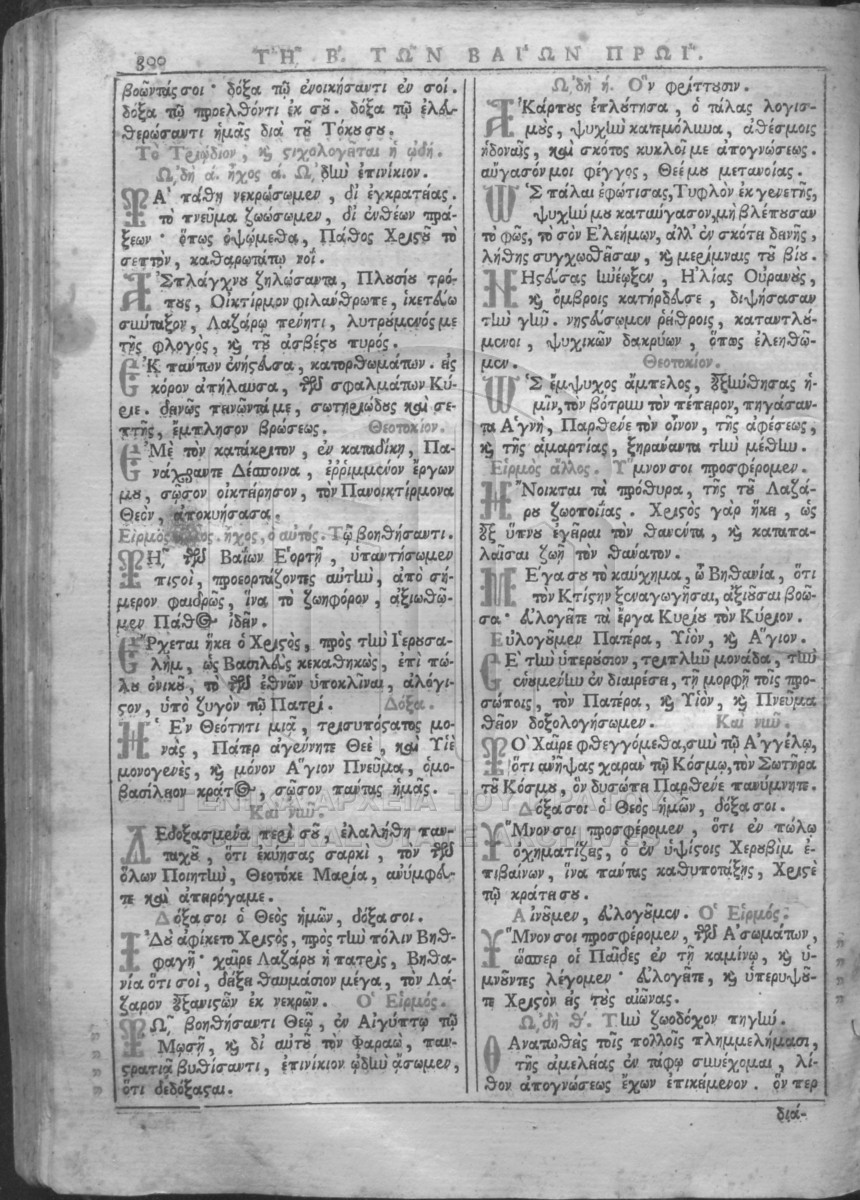 300
ΤΗ͂ Β΄. ΤΩ͂Ν ΒΑΪ́ΩΝ ΠΡΩΪ́.
βοῶντάς σοι· δόξα τῷ ἐνοικήσαντι ἐν σοί.
δόξα τῷ προελθόντι ἐκ σοῦ. δόξα τῷ ἐλευ-
θερώσαντι ἡμᾶς διὰ τοῦ Τόκου σου.
Τὸ Τριῴδιον, καὶ στιχολογεῖται ἡ ᾠδή.
Ὠδὴ ά. ἦχος ά. Ὠδὴν ἐπινίκιον.
ΤΑ΄ πάθη νεκρώσωμεν, δι' ἐγκρατείας.
τὸ πνεῦμα ζωώσωμεν, δι' ἐνθέων πρά-
ξεων· ὅπως ὀψώμεθα, Πάθος Χριστοῦ τὸ
σεπτὸν, καθαρωτάτῳ νοΐ.
ἈΣπλάγχνου ζηλώσαντα, Πλουσίου τρό-
πους, Οἰκτίρμον φιλάνθρωπε, ἱκετεύω
σύνταξον, Λαζάρῳ πένητι, λυτρούμενός με
τῆς φλογὸς, καὶ τοῦ ἀσβέστου πυρός.
ἘΚ πάντων ἐνήστευσα, κατορθωμάτων. εἰς
κόρον ἀπήλαυσα, τῶν σφαλμάτων Κύ-
ριε. δεινῶς πεινῶντά με, σωτηριώδους καὶ σε-
πτῆς, ἔμπλησον βρώσεως. Θεοτοκίον.
ἘΜὲ τὸν κατάκριτον, ἐν καταδίκῃ, Πα-
νάχραντε Δέσποινα, ἐῤῥιμμένον ἔργων
μου, σῶσον οἰκτείρησον, τὸν Πανοικτίρμονα
Θεὸν, ἀποκυήσασα.
Εἱρμὸς ἄλλος. ἦχος, ὁ αὐτός. Τῷ βοηθήσαντι.
ΤΗ͂ τῶν Βαΐων Ἑορτῇ, ὑπαντήσωμεν
πιστοὶ, προεορτάζοντες αὐτὴν, ἀπὸ σή-
μερον φαιδρῶς, ἵνα τὸ ζωηφόρον, ἀξιωθῶ-
μεν Πάθος ἰδεῖν.
ἜΡχεται ἥκει ὁ Χριστὸς, πρὸς τὴν Ἱερουσα-
λήμ, ὡς Βασιλεὺς κεκαθηκὼς, ἐπὶ πώ-
λου ὀνικοῦ, τὸ τῶν ἐθνῶν ὑποκλῖναι, ἀλόγι-
στον, ὑπὸ ζυγὸν τῷ Πατρί. Δόξα.
Ἡ Ἐν Θεότητι μιᾷ, τρισυπόστατος μο-
νὰς, Πάτερ ἀγέννητε Θεὲ, καὶ Υἱὲ
μονογενὲς, καὶ μόνον Ἅγιον Πνεῦμα, ὁμο-
βασίλειον κράτος, σῶσον πάντας ἡμᾶς.
Καὶ νῦν.
ΔΕδοξασμένα περὶ σοῦ, ἐλαλήθη παν-
ταχοῦ, ὅτι ἐκύησας σαρκὶ, τὸν τῶν
ὅλων Ποιητὴν, Θεοτόκε Μαρία, ἀνύμφευ-
τε καὶ ἀπειρόγαμε.
Δόξα σοι ὁ Θεὸς ἡμῶν, δόξα σοι.
ἸΔοὺ ἀφίκετο Χριστὸς, πρὸς τὴν πόλιν Βηθ-
φαγῆ· χαῖρε Λαζάρου ἡ πατρὶς, Βηθα-
νία ὅτι σοὶ, δείξει θαυμάσιον μέγα, τὸν Λά-
ζαρον ἐξανιστῶν ἐκ νεκρῶν. Ὁ Εἱρμός.
Τῼ͂ βοηθήσαντι Θεῷ, ἐν Αἰγύπτῳ τῷ
Μωσῇ, καὶ δι' αὐτοῦ τὸν Φαραὼ, παν-
στρατιᾷ βυθίσαντι, ἐπινίκιον ᾠδὴν ᾄσωμεν,
ὅτι δεδόξασται.
Ὠδὴ ή. Ὃν φρίττουσιν.
ἈΚάρπους ἐπλούτησα, ὁ τάλας λογισ-
μοὺς, ψυχὴν κατεμόλυνα, ἀθέσμοις
ἡδοναῖς, καὶ σκότος κυκλοῖ με ἀπογνώσεως.
αὔγασόν μοι φέγγος, Θεέ μου μετανοίας.
ὩΣ πάλαι ἐφώτισας, Τυφλὸν ἐκ γενετῆς,
ψυχήν μου καταύγασον, μὴ βλέπουσαν
τὸ φῶς, τὸ σὸν Ἐλεήμων, ἀλλ' ἐν σκότει δεινῆς,
λήθης συγχωθεῖσαν, καὶ μερίμναις τοῦ βίου.
ΝΗστεύσας ἠνέῳξεν, Ἠλίας Οὐρανοὺς,
καὶ ὄμβροις κατήρδευσε, διψήσασαν
τὴν γῆν. νηστεύσωμεν ῥείθροις, καταντλού-
μενοι, ψυχικῶν δακρύων, ὅπως ἐλεηθῶ-
μεν. Θεοτοκίον.
ὩΣ ἔμψυχος ἄμπελος, ἐξήνθησας ἡ-
μῖν, τὸν βότρυν τὸν πέπειρον, πηγάσαν-
τα Ἁγνὴ, Παρθένε τὸν οἶνον, τῆς ἀφέσεως,
καὶ τῆς ἁμαρτίας, ξηράναντα τὴν μέθην.
Εἱρμὸς ἄλλος. Ὕμνον σοι προσφέρομεν.
ἬΝοικται τὰ πρόθυρα, τῆς τοῦ Λαζά-
ρου ζωοποιΐας. Χριστὸς γὰρ ἥκει, ὡς
ἐξ ὕπνου ἐγεῖραι τὸν θανέντα, καὶ καταπα-
λαῖσαι ζωῇ τὸν θάνατον.
ΜΕ΄γα σου τὸ καύχημα, ὦ Βηθανία, ὅτι
τὸν Κτίστην ξεναγωγῆσαι, ἀξιοῦσαι βοῶ-
σα· εὐλογεῖτε τὰ ἔργα Κυρίου τὸν Κύριον.
Εὐλογοῦμεν Πατέρα, Υἱὸν, καὶ Ἅγιον.
ΣΕ΄ τὴν ὑπερούσιον, τριπλῆν μονάδα, τὴν
ἑνουμένην ἐν διαιρέσει, τῇ μορφῇ τοῖς προ-
σώποις, τὸν Πατέρα, καὶ Υἱὸν, καὶ Πνεῦμα
θεῖον δοξολογήσωμεν. Καὶ νῦν.
ΤΟ΄ Χαῖρε φθεγγόμεθα, σὺν τῷ Ἀγγέλῳ,
ὅτι ἀνῆψας χαρὰν τῷ Κόσμῳ, τὸν Σωτῆρα
τοῦ Κόσμου, ὃν δυσώπει Παρθένε πανύμνητε.
Δόξα σοι ὁ Θεὸς ἡμῶν, δόξα σοι.
ὝΜνον σοι προσφέρομεν, ὅτι ἐν πώλῳ
ὀχηματίζεις, ὁ ἐν ὑψίστοις Χερουβὶμ ἐ-
πιβαίνων, ἵνα πάντας καθυποτάξῃς, Χριστὲ
τῷ κράτει σου.
Αἰνοῦμεν, εὐλογοῦμεν. Ὁ Εἱρμός.
ὝΜνον σοι προσφέρομεν, τῶν Ἀσωμάτων,
ὥσπερ οἱ Παῖδες ἐν τῇ καμίνῳ, καὶ ὑ-
μνοῦντες λέγομεν· εὐλογεῖτε, καὶ ὑπερυψοῦ-
τε Χριστὸν εἰς τοὺς αἰῶνας.
Ὠδὴ θ΄. Τὴν ζωοδόχον πηγήν.
ΘΑνατωθεὶς τοῖς πολλοῖς πλημμελήμασι,
τῆς ἀμελείας ἐν τάφῳ συνέχομαι, λί-
θον ἀπογνώσεως ἔχων ἐπικείμενον. ὅν περ
διά-